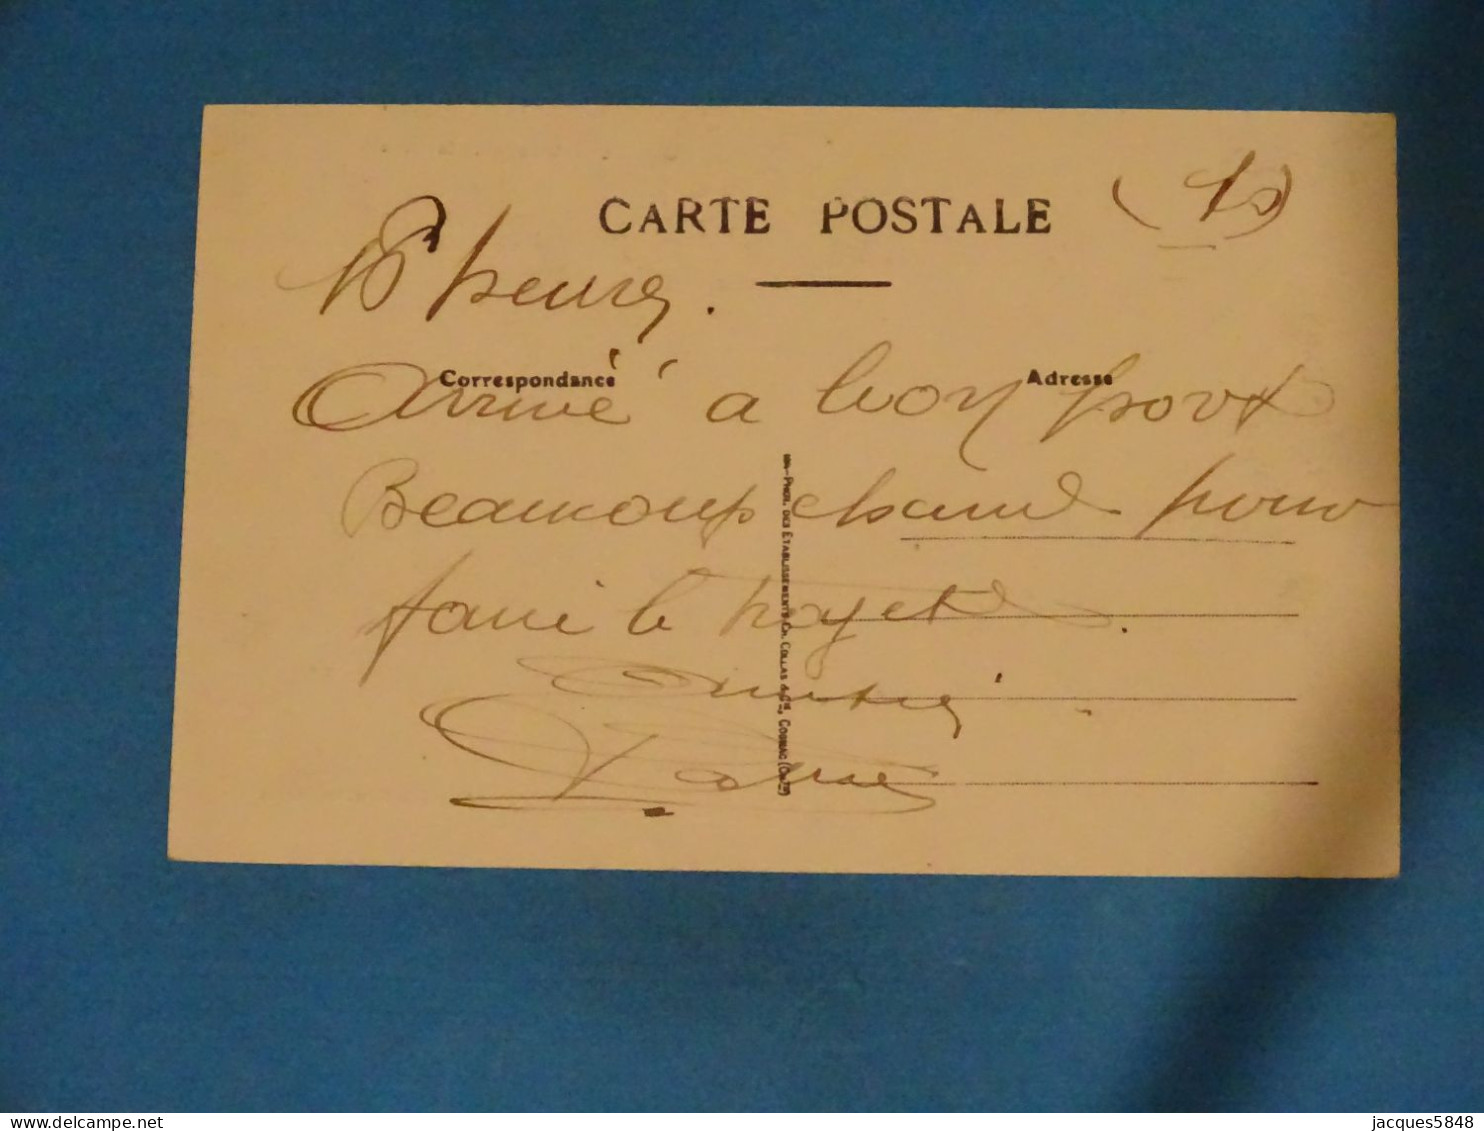 CARTE POSTALE
18 heures.
Correspondance
Adresse
Arrivé à bon port
Beaucoup chaud pour
faire le trajet.
Amitié
PHOT. DES ETABLISSEMENTS CH. COLLAS & Cie, COGNAC (Chte)
jacques5848